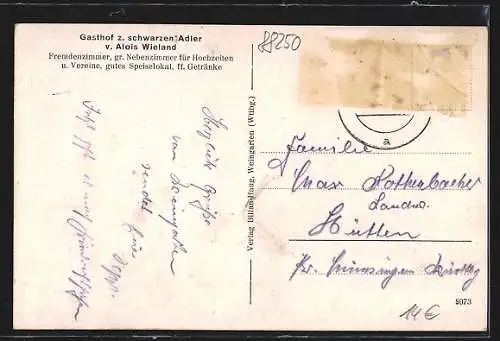 Gasthof z. schwarzen Adler
v. Alois Wieland
Fremdenzimmer, gr. Nebenzimmer für Hochzeiten
u. Vereine, gutes Speiselokal, ff. Getränke
88250
Herzliche Grüße
von Weingarten
sendet
Verlag Bildhandlung, Weingarten (Wttbg.)
a
Familie
Max Rothenbacher
Landw.
Hütten
Kr. Münsingen Württbg
5073
14€